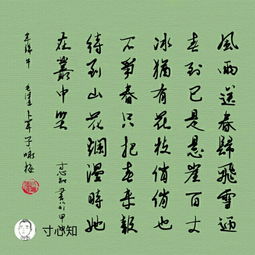 風雨送春歸飛雪迎
春到已是懸崖百丈
冰猶有花枝俏俏也
不爭春只把春來報
待到山花爛漫時她
在叢中笑
寸心知書於甲
毛澤東卜算子咏梅
寸心知